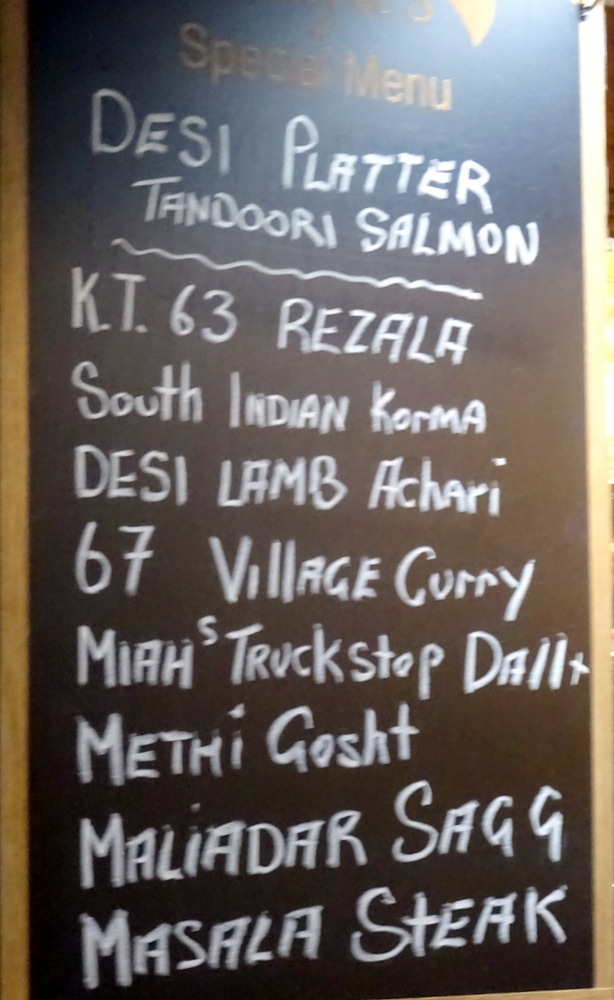 Special Menu
DESI PLATTER
TANDOORI SALMON
K.T. 63 REZALA
South INDIAN KORMA
DESI LAMB Achari
67 VillAGE Curry
MIAH'S Truckstop DAll
METHi Gosht
MALiADAR SAGG
MASALA STEAK